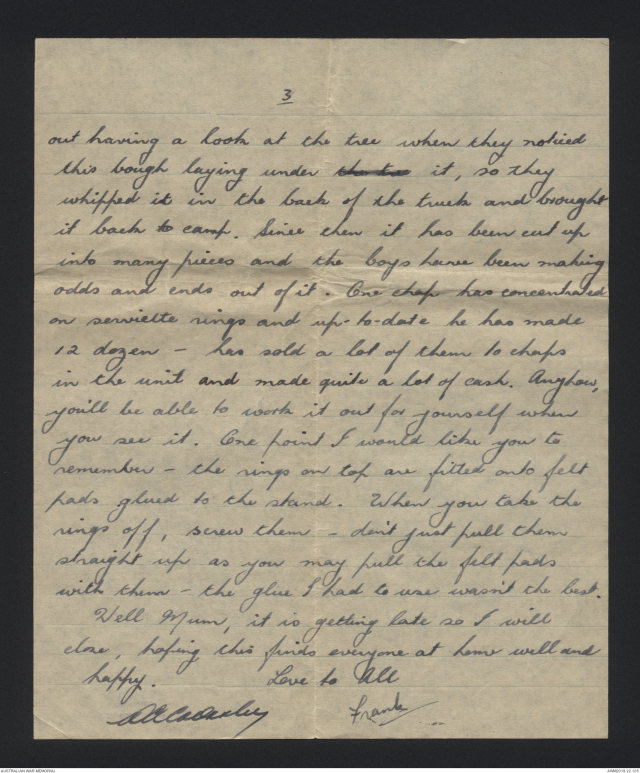 3
out having a look at the tree when they noticed
this bough laying under the tree it, so they
whipped it in the back of the truck and brought
it back to camp. Since then it has been cut up
into many pieces and the boys have been making
odds and ends out of it. One chap has concentrated
on serviette rings and up-to-date he has made
12 dozen - has sold a lot of them to chaps
in the unit and made quite a lot of cash. Anyhow,
you'll be able to work it out for yourself when
you see it. One point I would like you to
remember - the rings on top are fitted onto felt
pads glued to the stand. When you take the
rings off, screw them - don't just pull them
straight up as you may pull the felt pads
with them - the glue I had to use wasn't the best.
Well Mum, it is getting late so I will
close, hoping this finds everyone at home well and
happy. Love to All
Frank
AUSTRALIAN WAR MEMORIAL